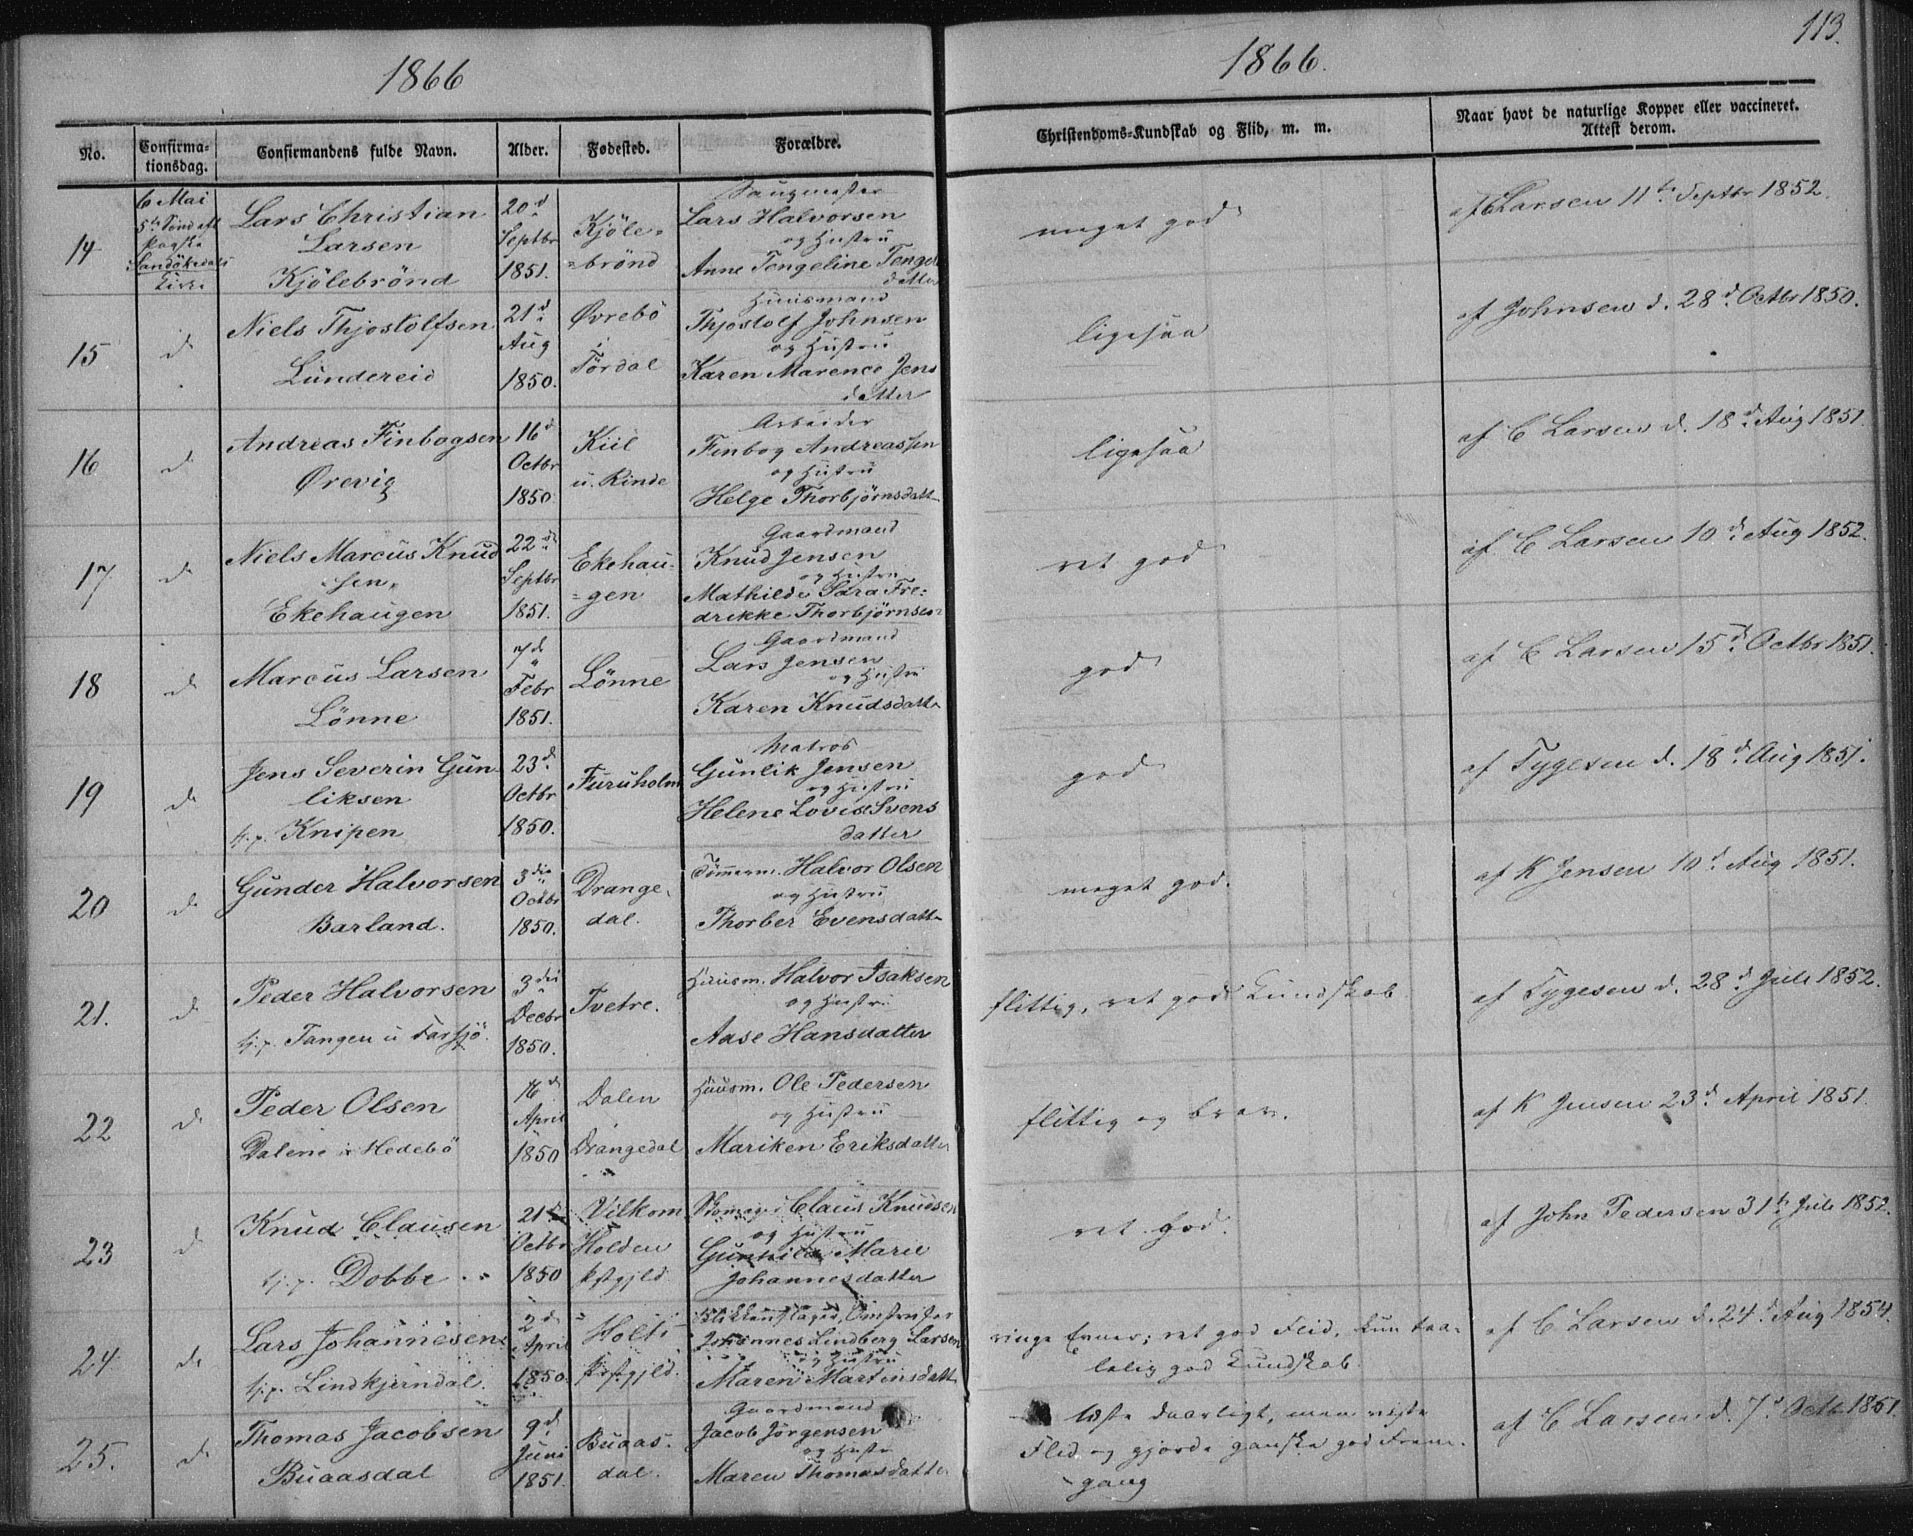 1866
1866.
113.
No.
Confirma-
tionsdag.
Confirmandens fulde Navn.
Alder.
Fødested.
Forældre.
Christendoms-Kundskab og Flid, m. m.
Naar havt de naturlige Kopper eller vaccineret.
Attest derom.
14
6 Mai
5te Sönd eft
Paaske
Kirke
Lars Christian
Larsen
Kjölebrönd
20d
Septbr
1851.
Kjöle-
=brønd
Lars Halvorsen
og Hustru
Anne Tengeline Tengels
datter
meget god
af C Larsen 11te Septbr 1852.
15
do
Niels Thjostolfsen
Lundereid
21d
Aug
1850.
Øvrebö
i
Tördal
Huusmand
Thjostolf Johnsen
og Hustru
Karen Marence Jens
datter
ligesaa
af Johnsen d. 28d Octbr 1850.
16
do
Andreas Finbogsen
Ørevig
16d
Octbr
1850.
Kiil
u. Rinde
Arbeider
Finbog Andreassen
og Hustru
Helge Thorbjørnsdatt
ligesaa
af C Larsen d. 18d Aug 1851.
17
do
Niels Marcus Knud
sen
Ekehaugen
22de
Septbr
1851.
Ekehau-
=gen
Gaardmand
Knud Jensen
og Hustru
Mathilde Sara Fre-
drikke Thorbjørnsen
ret god
af C Larsen 10d Aug 1852.
18
do
Marcus Larsen
Lönne
7d
Febr
1851.
Lönne
Gaardmand
Lars Jensen
og Hustru
Karen Knudsdatt
god
af C Larsen 15d Octbr 1851.
19
do
Jens Severin Gun
liksen
tj. p. Knipen
23d
Octbr
1850.
Furuholm
Matros
Gunlik Jensen
og Hustru
Helene Lovise Svens
datter
god
af Tygesen d. 18d Aug 1851.
20
do
Gunder Halvorsen
Barland.
3die
Octbr
1850.
Drange-
dal.
Tömmerm. Halvor Olsen
og Hustru
Thorber Evensdatt
meget god.
af K Jensen 10d Aug 1851.
21.
do
Peder Halvorsen
tj. p. Tangen u Farsjö.
3die
Decbr
1850.
Tvetre.
Huusm. Halvor Isaksen
og Hustru
Aase Hansdatter
flittig, ret god Kundskab
af Tygesen d. 28d Juli 1852.
22
do
Peder Olsen
Dalene i Hedebö
16d
April
1850
Dalen
i
Drangedal
Huusm. Ole Pedersen
og Hustru
Mariken Eriksdatter
flittig og brav.
af K Jensen 23d April 1851.
23
do
Knud Clausen
tj. p. Dobbe
21d
Octbr
1850
Vilkom
Holden
Pstgjld.
Skomager Claus Knudsen
og Hustru
Gunhild Marie
Johannesdatter
ret god.
af John Pedersen 31te Juli 1852.
24
do
Lars Johannesen
tj. p. Lindkjerndal.
2d
April
1850.
Holts
Prstgjld.
Johannes Lindberg Larsen
og Hustru
Maren Martinsdatt
ringe Evner; ret god Flid, kun taa-
lelig god Kundskab.
af C Larsen d. 24d Aug 1854.
25.
do
Thomas Jacobsen
Buaasdal
9d
Juni
1851.
Buaas-
dal.
Gaardmand
Jacob Jörgensen
og Hustru
Maren Thomasdatter
læste daarligt, men viste
Flid og gjorde ganske god Frem-
gang
af C Larsen d. 7d Octbr 1851.